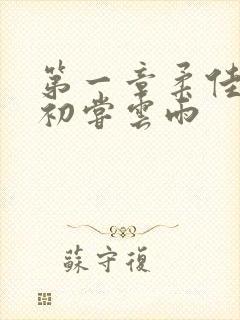 第一章柔佳
初嘗雲雨
蘇守復